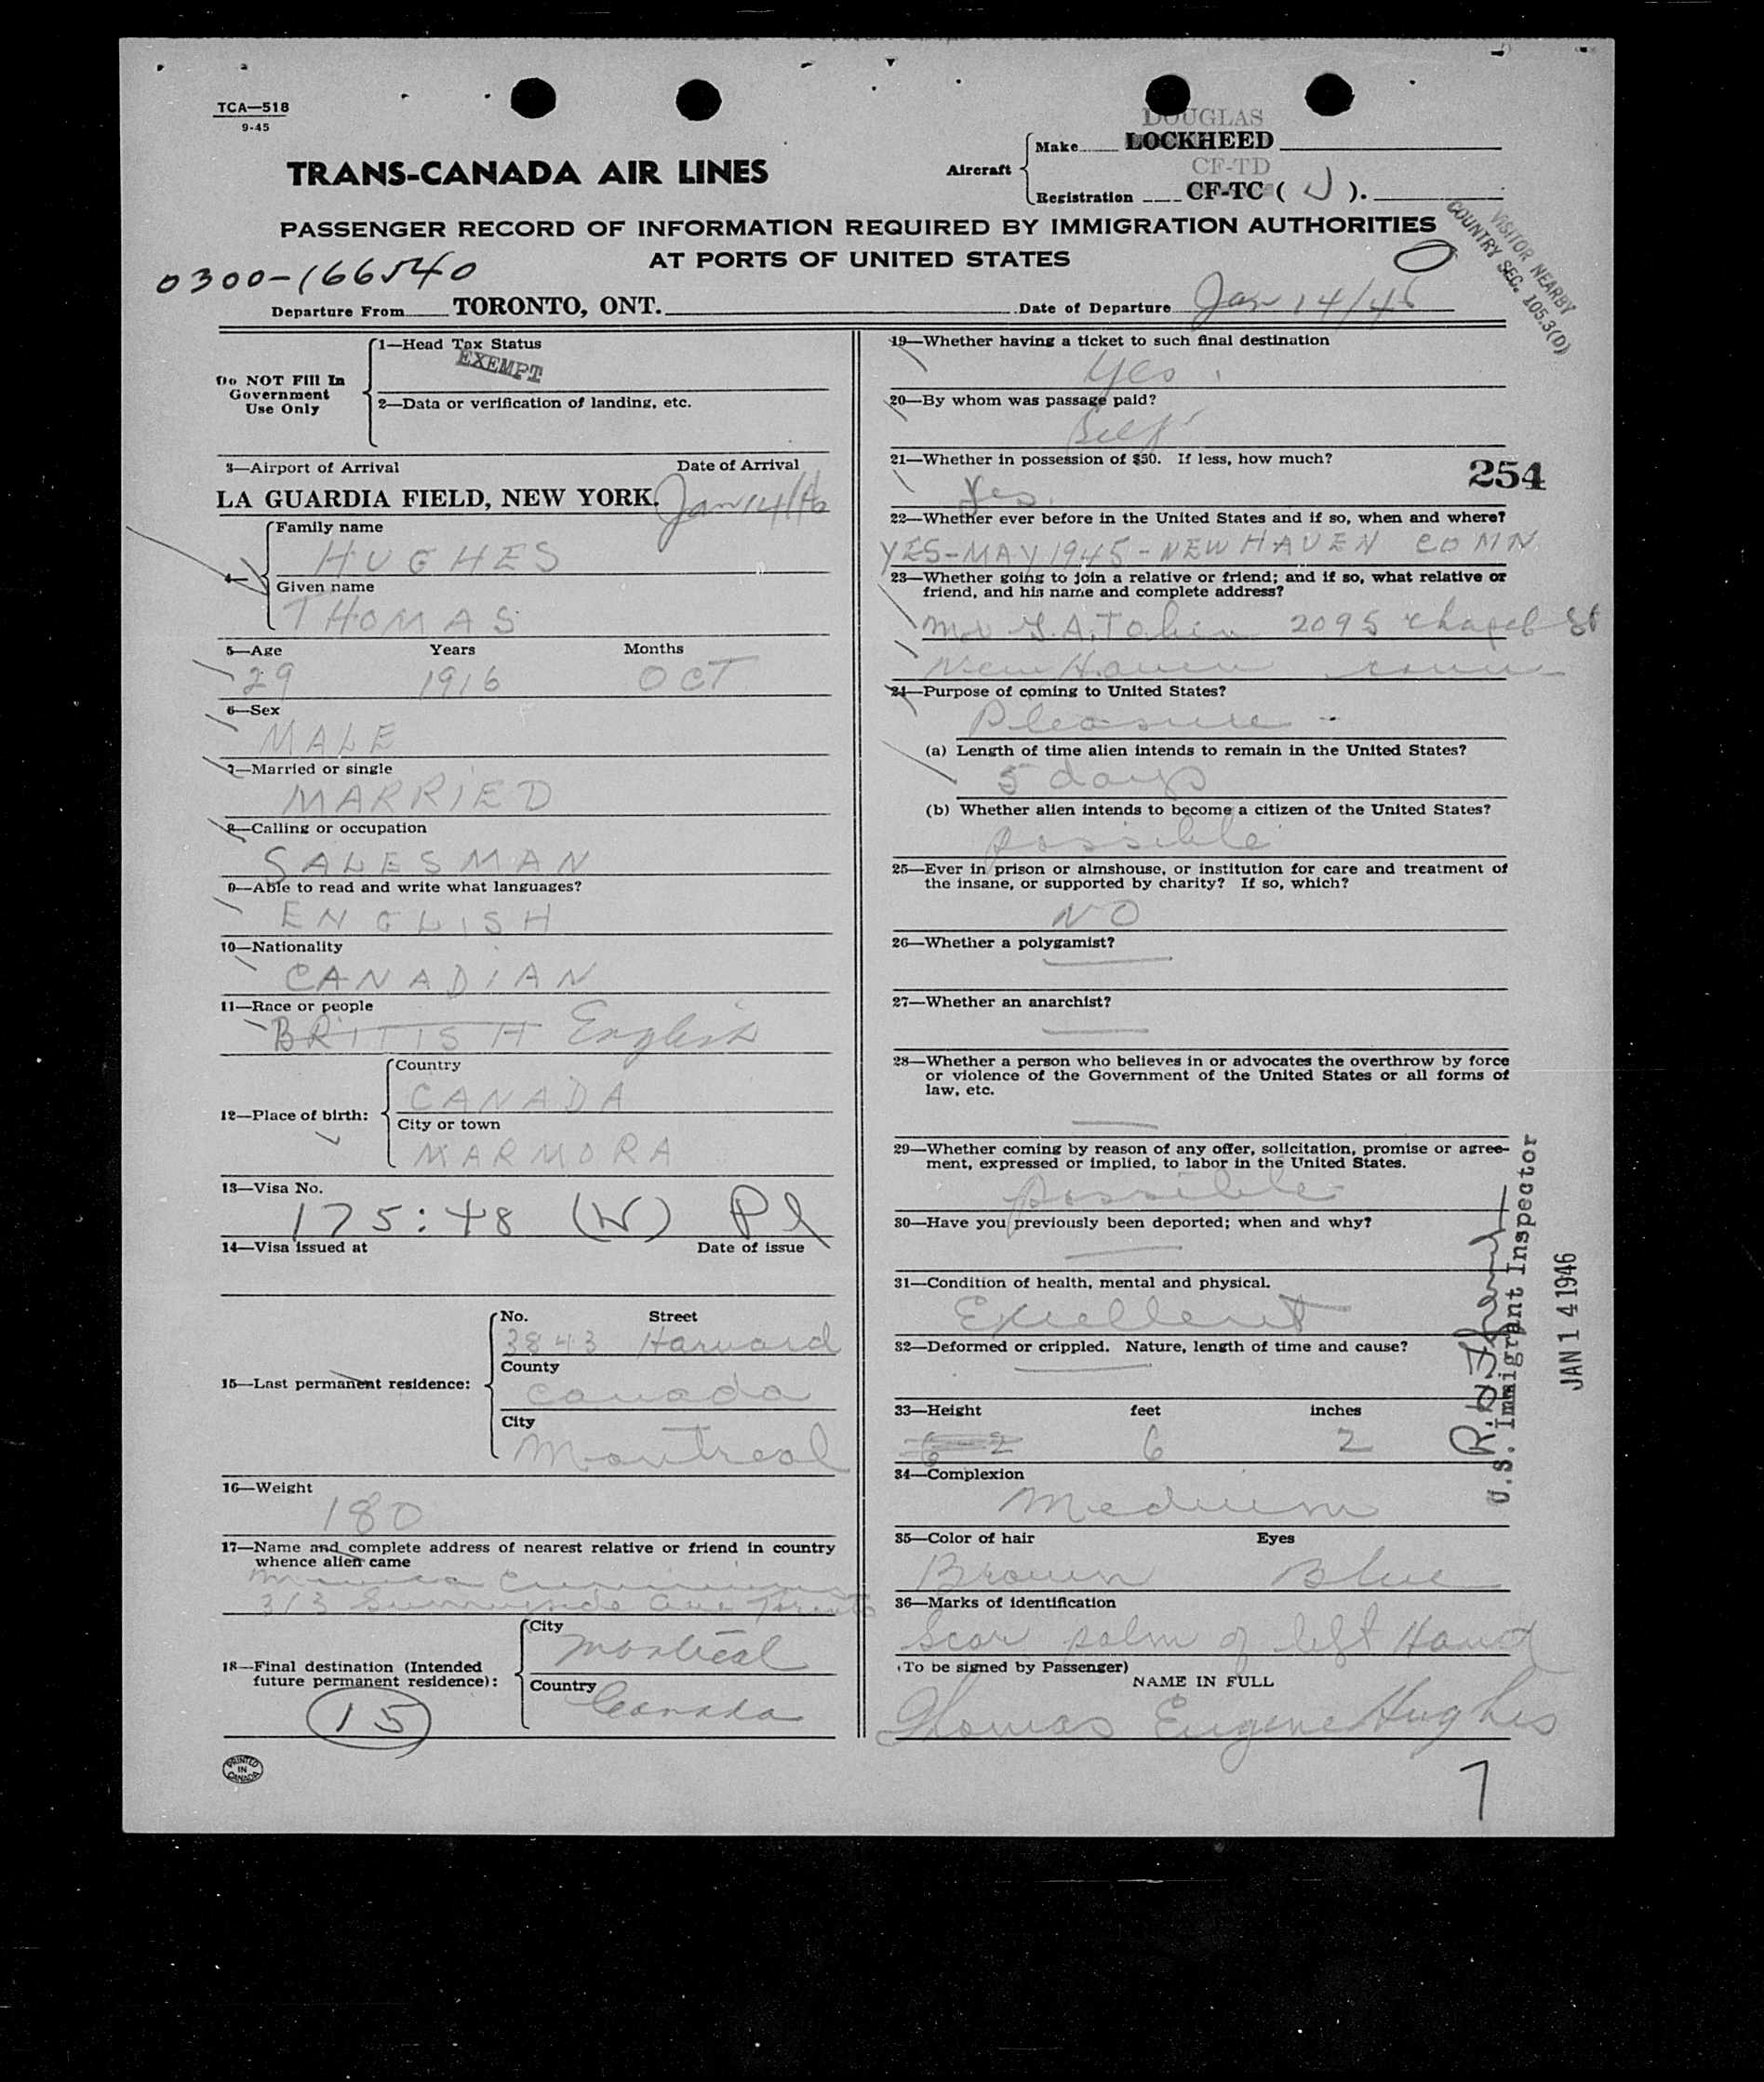 TCA—518
9-45
TRANS-CANADA AIR LINES
Aircraft
DOUGLAS
Make LOCKHEED
CF-TD
Registration CF-TC ( J ).
PASSENGER RECORD OF INFORMATION REQUIRED BY IMMIGRATION AUTHORITIES
AT PORTS OF UNITED STATES
VISITOR NEARBY
COUNTRY SEC. 105.3(D)
0300-166540
Departure From TORONTO, ONT. Date of Departure Jan 14/46
Do NOT Fill In
Government
Use Only
1—Head Tax Status
EXEMPT
2—Data or verification of landing, etc.
3—Airport of Arrival Date of Arrival
LA GUARDIA FIELD, NEW YORK. Jan 14/46
4—
Family name
HUGHES
Given name
THOMAS
5—Age Years Months
29 1916 OCT
6—Sex
MALE
7—Married or single
MARRIED
8—Calling or occupation
SALESMAN
9—Able to read and write what languages?
ENGLISH
10—Nationality
CANADIAN
11—Race or people
BRITISH English
12—Place of birth:
Country
CANADA
City or town
MARMORA
13—Visa No.
175:48 (W) Pl
14—Visa issued at Date of issue
15—Last permanent residence:
No. Street
3843 Harvard
County
Canada
City
Montreal
16—Weight
180
17—Name and complete address of nearest relative or friend in country
whence alien came
313 Sunnyside Ave Toronto
18—Final destination (Intended
future permanent residence):
City
Montreal
Country
Canada
15
PRINTED
IN
CANADA
19—Whether having a ticket to such final destination
Yes
20—By whom was passage paid?
Self
21—Whether in possession of $50. If less, how much?
Yes.
254
22—Whether ever before in the United States and if so, when and where?
YES-MAY 1945-NEW HAVEN CONN
23—Whether going to join a relative or friend; and if so, what relative or
friend, and his name and complete address?
A. Tobin 2095 Chapel St
New Haven Conn
24—Purpose of coming to United States?
Pleasure
(a) Length of time alien intends to remain in the United States?
5 days
(b) Whether alien intends to become a citizen of the United States?
possible
25—Ever in prison or almshouse, or institution for care and treatment of
the insane, or supported by charity? If so, which?
NO
26—Whether a polygamist?
27—Whether an anarchist?
28—Whether a person who believes in or advocates the overthrow by force
or violence of the Government of the United States or all forms of
law, etc.
29—Whether coming by reason of any offer, solicitation, promise or agree-
ment, expressed or implied, to labor in the United States.
possible
30—Have you previously been deported; when and why?
31—Condition of health, mental and physical.
Excellent
32—Deformed or crippled. Nature, length of time and cause?
33—Height feet inches
6-2 6 2
34—Complexion
Medium
35—Color of hair Eyes
Brown Blue
36—Marks of identification
Scar palm of left Hand
(To be signed by Passenger)
NAME IN FULL
Thomas Eugene Hughes
U.S. Immigrant Inspector
JAN 14 1946
7